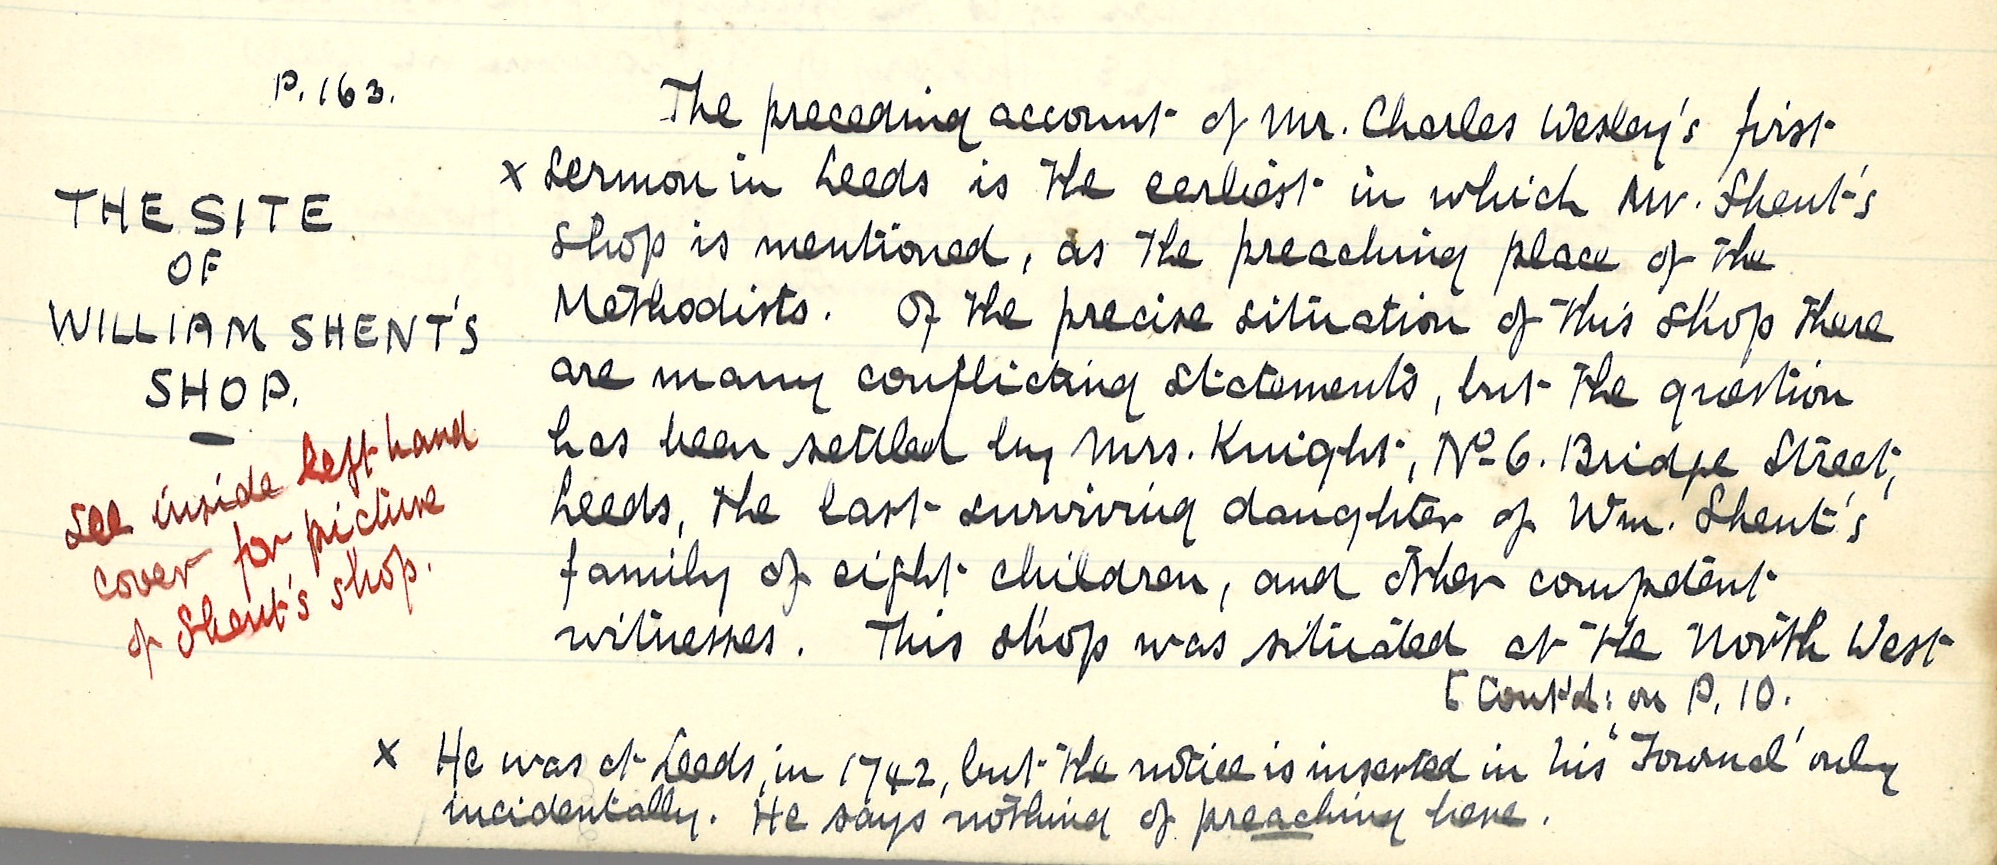 P. 163.
THE SITE
OF
WILLIAM SHENT'S
SHOP.
See inside left hand
cover for picture
of Shent's shop.
The preceding account of Mr. Charles Wesley's first
x Sermon in Leeds is the earliest in which Mr. Shent's
Shop is mentioned, as the preaching place of the
Methodists. Of the precise situation of this shop there
are many conflicting statements, but the question
has been settled by Mrs. Knight, No 6. Bridge Street,
Leeds, the last surviving daughter of Wm. Shent's
family of eight children, and other competent
witnesses. This shop was situated at the North West
[Cont'd: on P. 10.
x He was at Leeds, in 1742, but the notice is inserted in his 'Journal' only
incidentally. He says nothing of preaching here.